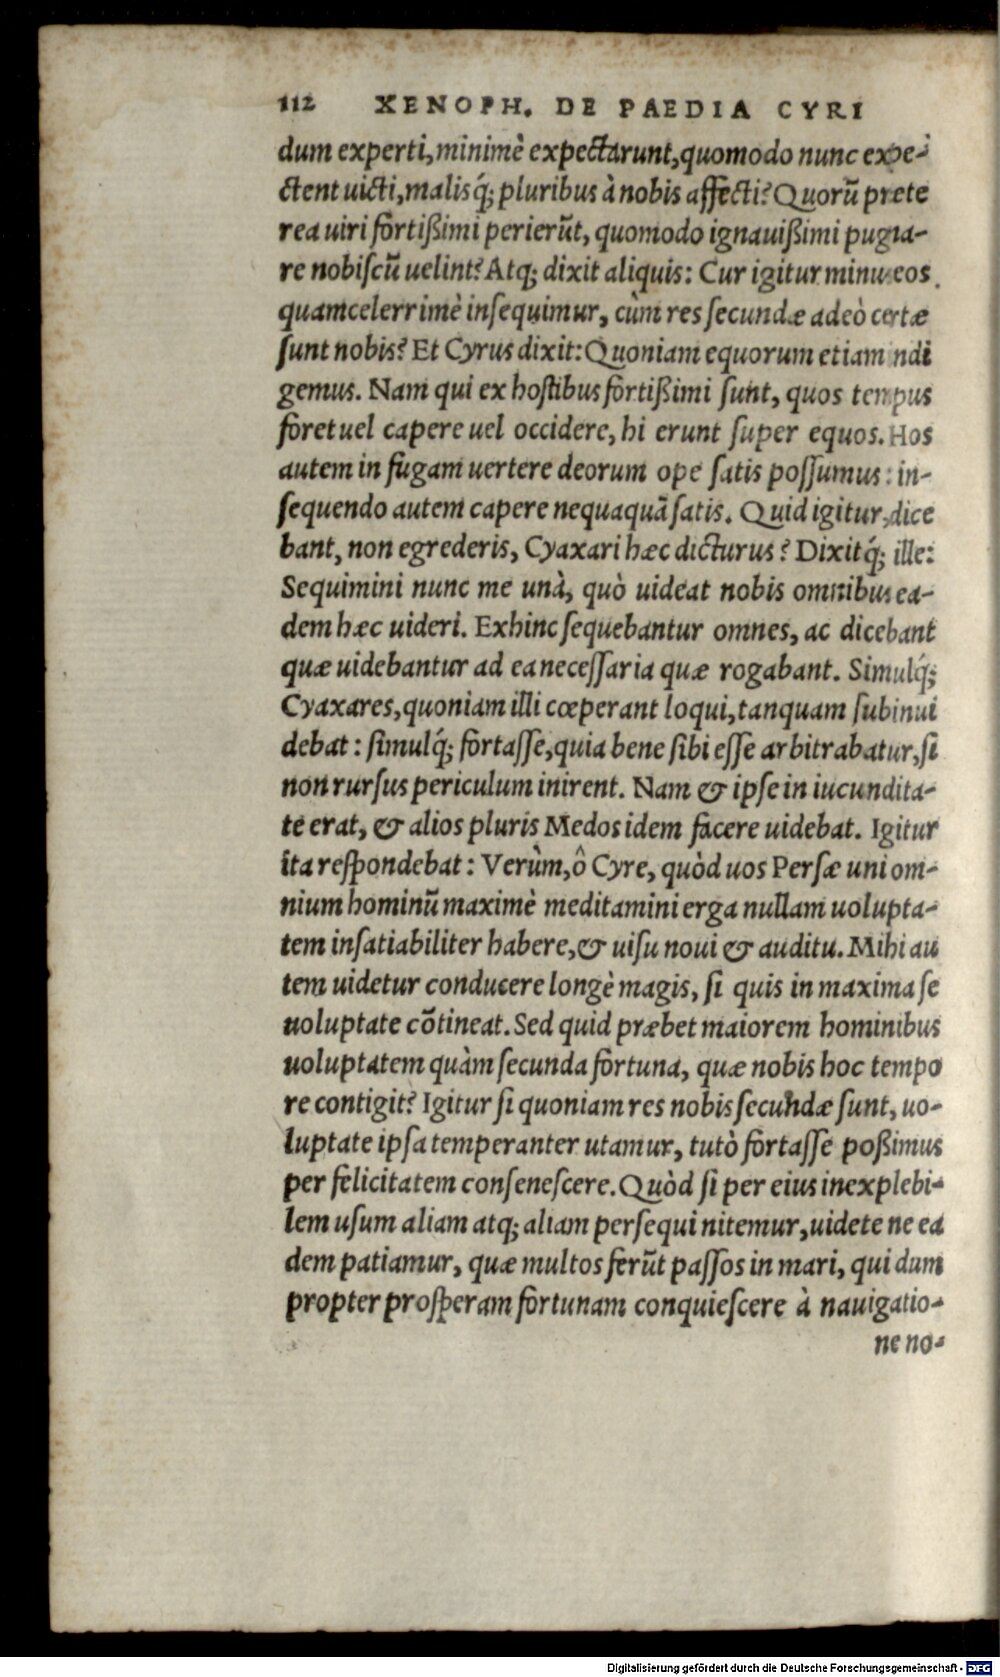 112 XENOPH. DE PAEDIA CYRI
dum experti, minimè expectarunt, quomodo nunc expe-
ctent uicti, malisq́; pluribus à nobis affecti? Quorũ prete
rea uiri fortißimi perierũt, quomodo ignauißimi pugna-
re nobiscũ uelint? Atq; dixit aliquis: Cur igitur minus eos
quamcelerrimè insequimur, cùm res secundæ adeò certæ
sunt nobis? Et Cyrus dixit: Quoniam equorum etiam indi
gemus. Nam qui ex hostibus fortißimi sunt, quos tempus
foret uel capere uel occidere, hi erunt super equos. Hos
autem in fugam uertere deorum ope satis possumus: in-
sequendo autem capere nequaquã satis. Quid igitur, dice
bant, non egrederis, Cyaxari hæc dicturus? Dixitq́; ille:
Sequimini nunc me unà, quò uideat nobis omnibus ea-
dem hæc uideri. Exhinc sequebantur omnes, ac dicebant
quæ uidebantur ad ea necessaria quæ rogabant. Simulq́;
Cyaxares, quoniam illi cœperant loqui, tanquam subinui
debat: simulq́; fortasse, quia bene sibi esse arbitrabatur, si
non rursus periculum inirent. Nam & ipse in iucundita-
te erat, & alios pluris Medos idem facere uidebat. Igitur
ita respondebat: Verùm, ô Cyre, quòd uos Persæ uni om-
nium hominũ maximè meditamini erga nullam uolupta-
tem insatiabiliter habere, & uisu noui & auditu. Mihi au
tem uidetur conducere longè magis, si quis in maxima se
uoluptate cõtineat. Sed quid præbet maiorem hominibus
uoluptatem quàm secunda fortuna, quæ nobis hoc tempo
re contigit? Igitur si quoniam res nobis secundæ sunt, uo-
luptate ipsa temperanter utamur, tutò fortasse poßimus
per felicitatem consenescere. Quòd si per eius inexplebi-
lem usum aliam atq; aliam persequi nitemur, uidete ne ea
dem patiamur, quæ multos ferũt passos in mari, qui dum
propter prosperam fortunam conquiescere à nauigatio-
ne no-
Digitalisierung gefördert durch die Deutsche Forschungsgemeinschaft - DFG